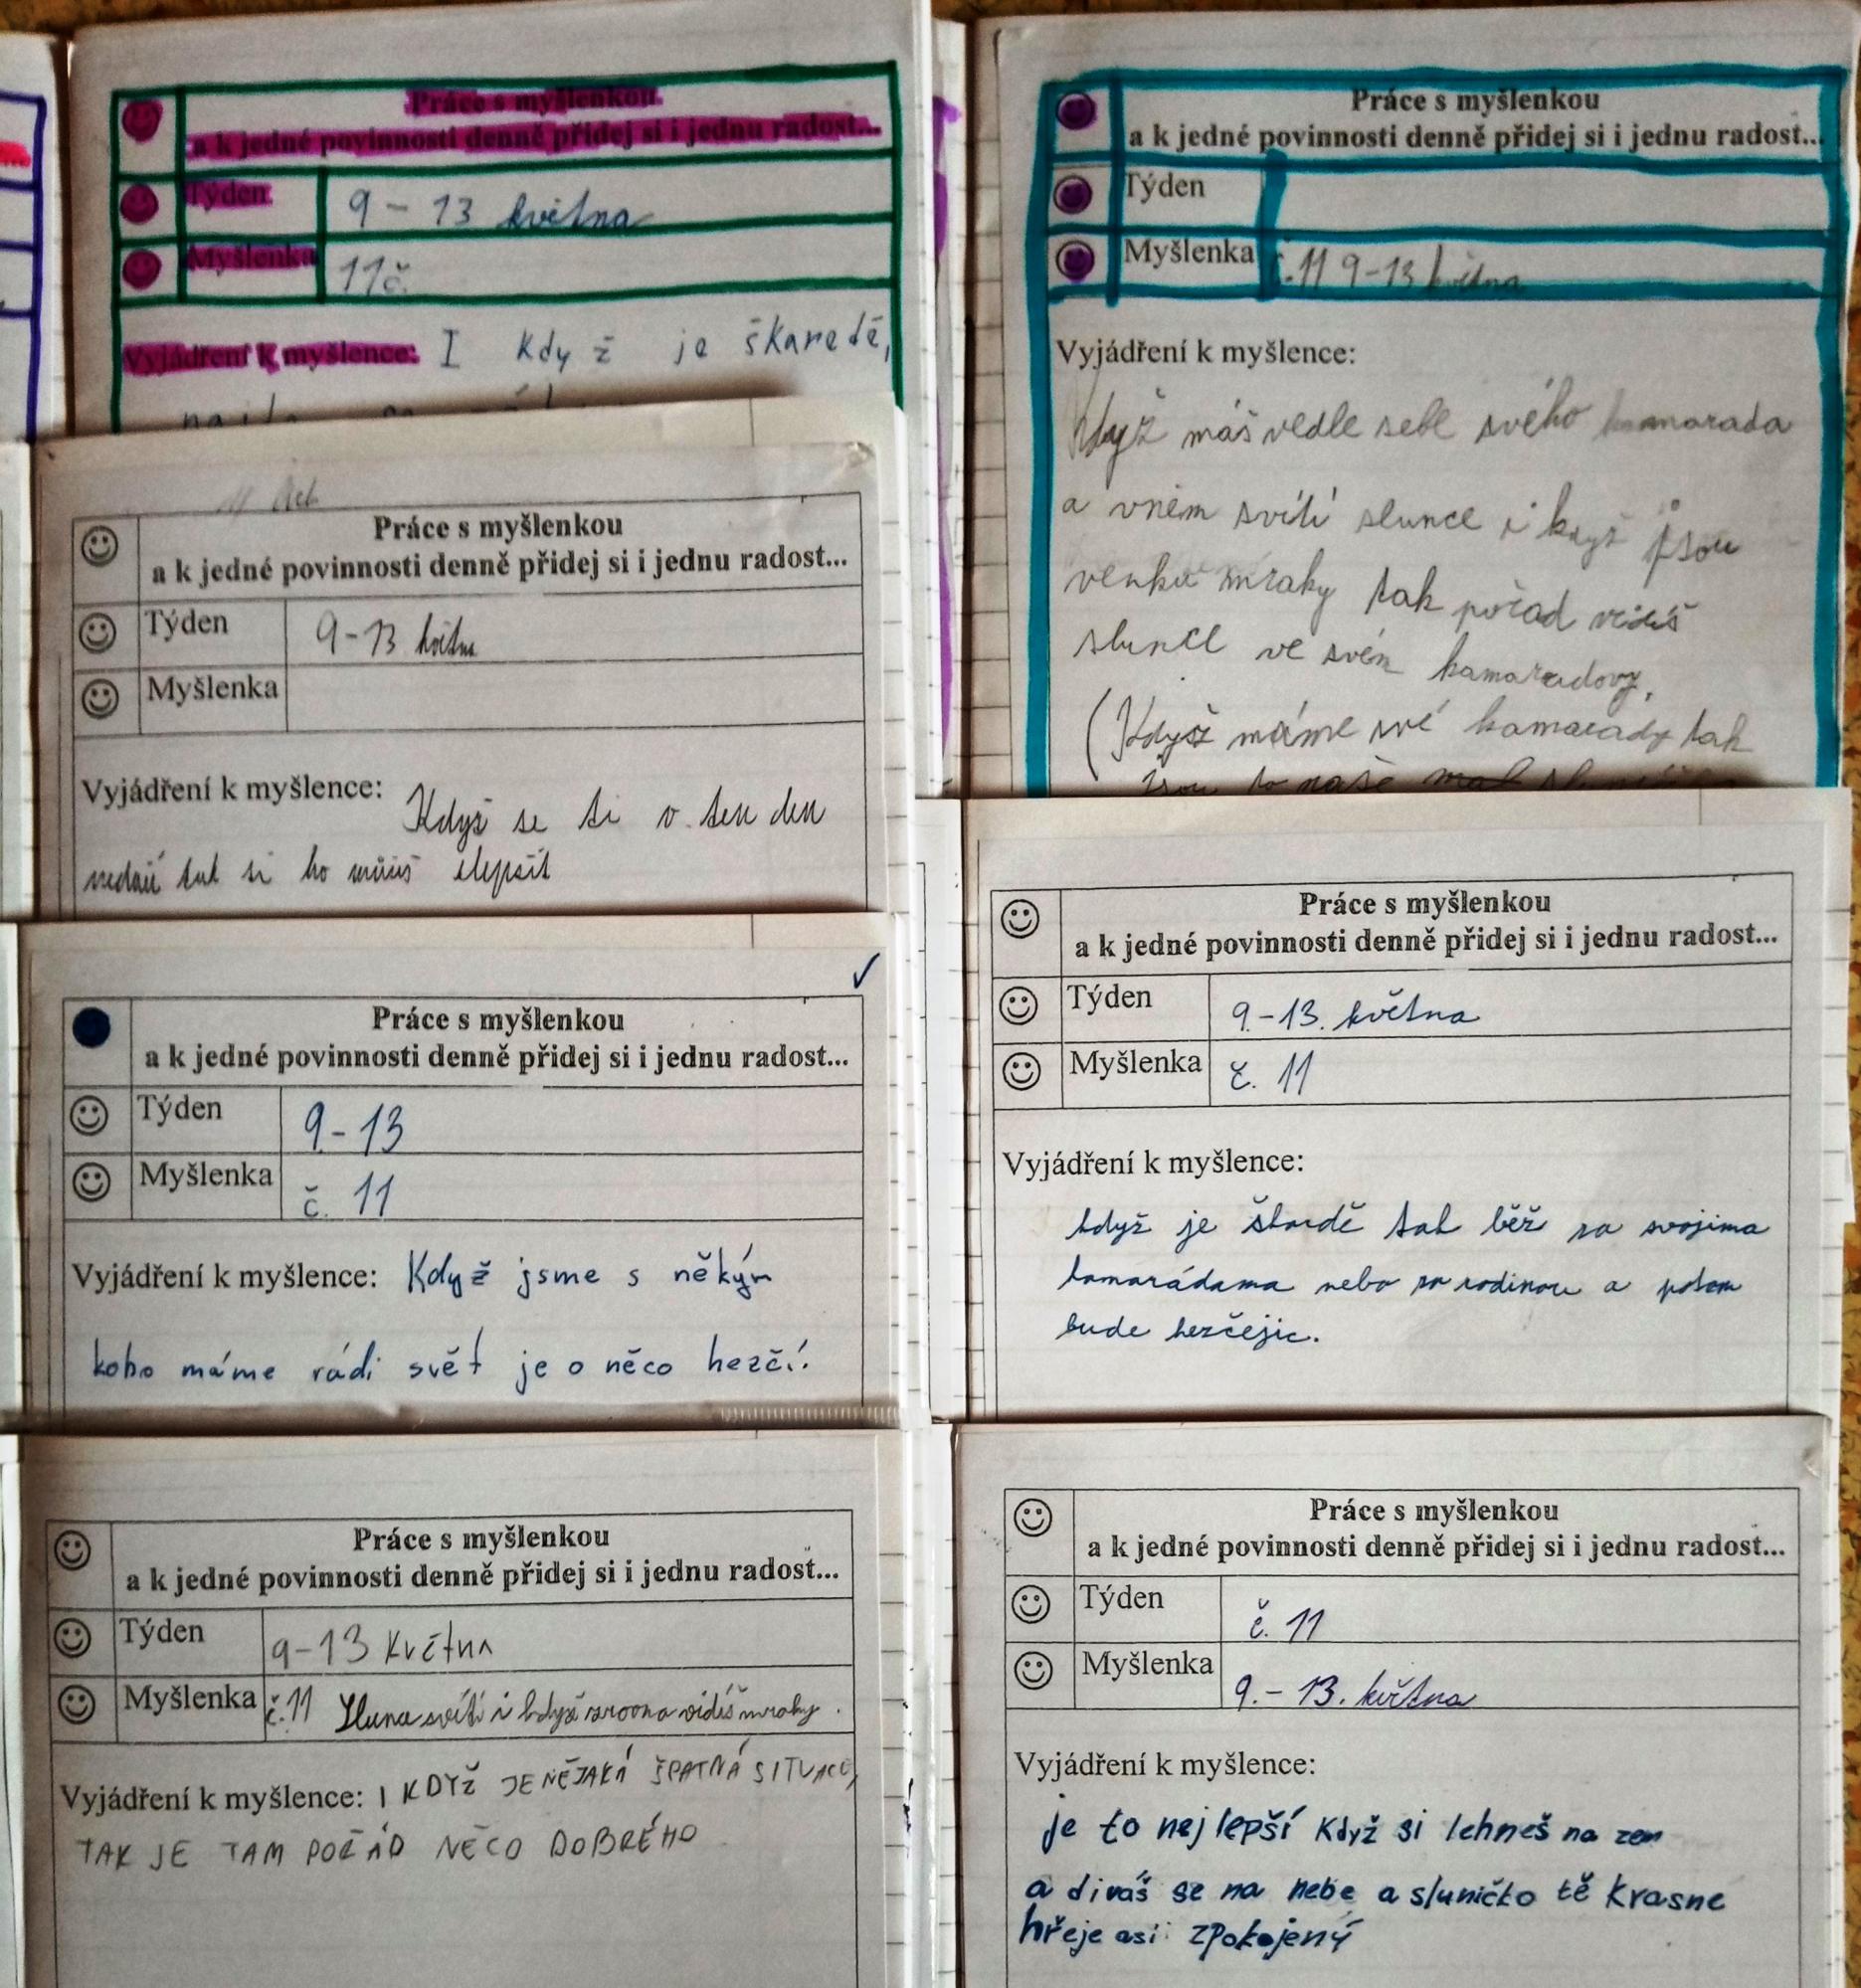 Práce s myšlenkou
a k jedné povinnosti denně přidej si i jednu radost...
Týden
9 - 13 května
Myšlenka
11č.
Vyjádření k myšlence: I když je škaredě,
Práce s myšlenkou
a k jedné povinnosti denně přidej si i jednu radost...
Týden
9-13 květn
Myšlenka
Vyjádření k myšlence:
Když se ti v ten den
nedaří tak si ho můžeš zlepšit
Práce s myšlenkou
a k jedné povinnosti denně přidej si i jednu radost...
Týden
9.-13
Myšlenka
č. 11
Vyjádření k myšlence: Když jsme s někým
koho máme rádi svět je o něco hezčí.
Práce s myšlenkou
a k jedné povinnosti denně přidej si i jednu radost...
Týden
9-13 Května
Myšlenka
č.11 Slunce svítí i když zrovna vidíš mraky.
Vyjádření k myšlence: I KDYŽ JE NĚJAKÁ ŠPATNÁ SITUACE,
TAK JE TAM POŘÁD NĚCO DOBRÉHO
Práce s myšlenkou
a k jedné povinnosti denně přidej si i jednu radost...
Týden
Myšlenka
č.11 9-13 května
Vyjádření k myšlence:
Když máš vedle sebe svého kamarada
a vněm svítí slunce i když jsou
venku mraky tak pořad vidíš
slunce ve svém kamaradovy,
(Když máme své kamarady tak
jsou to naše
Práce s myšlenkou
a k jedné povinnosti denně přidej si i jednu radost...
Týden
9.-13. května
Myšlenka
č. 11
Vyjádření k myšlence:
když je škardě tak běž za svojima
kamarádama nebo za rodinou a potom
bude hezčejic.
Práce s myšlenkou
a k jedné povinnosti denně přidej si i jednu radost...
Týden
č. 11
Myšlenka
9. - 13. května
Vyjádření k myšlence:
je to nejlepší Když si lehneš na zem
a divaš se na nebe a sluničko tě krasne
hřeje asi zpokojený